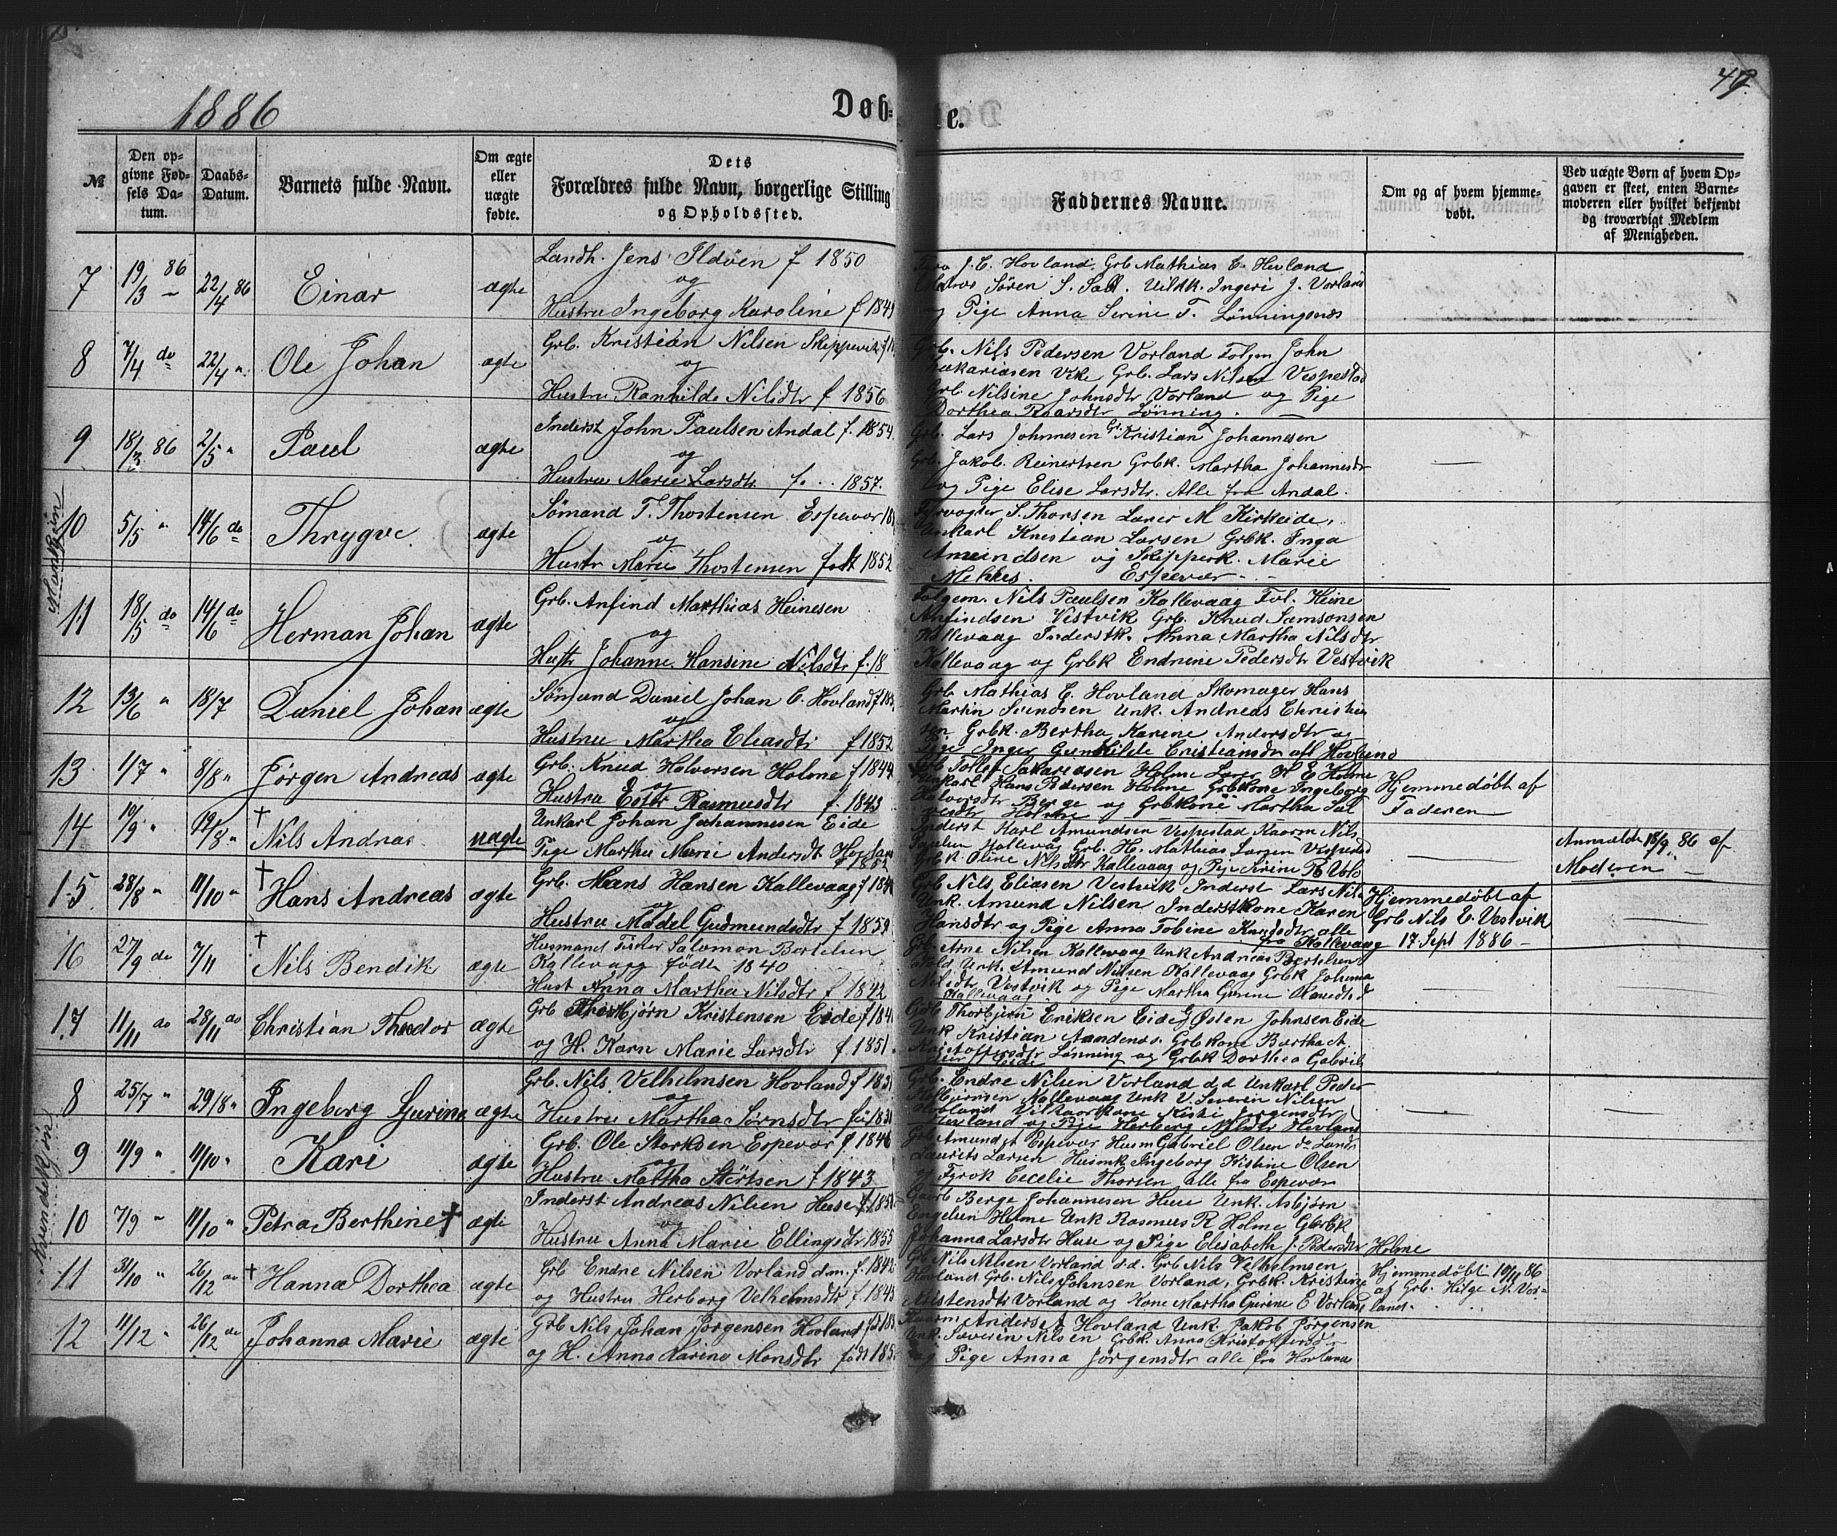 1886
Døb-
e.
49
№
Den op-
givne Fød-
sels Da-
tum.
Daabs-
Datum.
Barnets fulde Navn.
Om ægte
eller
uægte
fødte.
Dets
Forældres fulde Navn, borgerlige Stilling
og Opholdssted.
Faddernes Navne.
Om og af hvem hjemme-
døbt.
Ved uægte Børn af hvem Op-
gaven er skeet, enten Barne-
moderen eller hvilket bekjendt
og troværdigt Medlem
af Menigheden.
Mandkjøn
7 19/3 86 22/4 86 Einar ægte
Landh. Jens Ildøen f 1850
og
Hustru Ingeborg Karoline f
J. E. Hovland Grb Mathias E Hovland
Søren S. Ingeri J. Vorland
og Pige Anna Serine T. Lønningsnæs
8 7/4 do 22/4 " Ole Johan ægte
Grb. Kristian Nilsen Skippevik
og
Hustru Ranhilde Nilsdtr f 1856
Grb. Nils Pedersen Vorland Folgm John
Sakariasen Vike Grb. Lars Nilsen Vespestad
Grb. Nilsine Johnsdtr Vorland og Pige
Dorthea Lønning.
9 18/3 86 2/5 " Paul ægte
Inderst John Paulsen Andal f. 1854
og
Hustru Marie Larsdtr f. 1857.
Grb. Lars Johnnesen Gr. Kristian Johannesen
Grb. Jakob Reinertsen Grbk. Martha Johannesdtr
og Pige Elise Larsdtr. Alle fra Andal.
10 5/5 " 14/6 do Thrygve ægte
Sømand T. Thostensen Espevær
og
Hustr Marie Thostensen født 1852
Fyrvogter S. Thorsen Lærer M Kirkeide,
Unkarl Kristian Larsen Grbk. Inga
Amundsen og Skipperk. Marie
Espevær
11 18/5 do 14/6 do Herman Johan ægte
Grb. Anfind Marthias Heinesen
og
Hustr Johanne Hansine Nilsdtr f. 18
Folgem. Nils Paulsen Kallevaag Fol. Heine
Anfindsen Vestvik Grb. Knud Samsonsen
Kallevaag Inderstk. Anna Martha Nilsdtr
Kallevaag og Grbk Endrine Pedersdtr Vestvik
12 13/6 " 18/7 Daniel Johan ægte
Sømand Daniel Johan C. Hovland
og
Hustru Martha Eliasdtr f 1852
Grb Mathias E. Hovland Skomager Hans
Martin Svendsen Unk. Andreas Christian
sen Grbk. Bertha Karine Andersdtr og
Pige Inger Gunhilde Cristiansdtr alle Hovland
13 1/7 " 8/8 " Jørgen Andreas ægte
Grb. Knud Halversen Holme f 1844
og
Hustru Ester Rasmusdtr f. 1843
Grb Tollef Sakariasen Holme Lærer H E Holme
Unkarl Hans Pedersen Holme Grbkone Ingeborg
Halversdtr Berge og Grbkone Martha
Holme
Hjemmedøbt af
Faderen
14 † Nils Andreas uægte
Unkarl Johan Johannesen Eide
Pige Martha Marie Andersdt Hovland
f 1852
Inderst Karl Amundsen Vespestad Nils
Kallevaag Grb. H. Mathias Larsen Vespestad
Grbk Oline Nilsdtr Kallevaag og Pige Sirine
Anmeldt 18/9 86 af
Moderen
15 28/8 " 11/10 " † Hans Andreas ægte
Grb. Mons Hansen Kallevaag f
og
Hustru Madel Gudmundsdtr f 1859
Grb Nils Eliasen Vestvik Inderst Lars Nils
Unk. Amund Nilsen Inderstkone Karen
Hansdtr og Pige Anna Tobine Knudsdtr alle
fra Kallevaag
Hjemmedøbt af
Grb Nils E. Vestvik
17 Sept 1886
16 27/9 do 7/11 † Nils Bendik ægte
Husmand Fisker Salomon Bertelsen
Kallevaag født 1840
Hust Anna Martha Nilsdtr f 1842
Grb Arne Nilsen Kallevaag Unk Andreas Bertelsen
Unk. Amund Nilsen Kallevaag Grbk Johanna
Nilsdtr Vestvik og Pige Martha Gurine
Kallevaag
17 11/11 do 28/11 do Christian Thedor ægte
Grb Thorbjørn Kristensen Eide f
og H. Karn Marie Larsdtr f 1851
Grb Thorbjørn Eriksen Eide G Østen Johnsen Eide
Unk Kristian Grbkone Bertha
Kristoffersdtr Lønning og Grbk Dorthea Gabriels
Kvindekjøn
8 25/7 " 29/8 " Ingeborg Gurina ægte
Grb. Nils Velhelmsen Hovland f
og
Hustru Martha Sørnsdtr
Grb. Endre Nilsen Vorland Unkarl Peder
Kallevaag Unk V. Severin Nilsen
Hovland Vilkaarskone Kisti Jørgensdtr
og Pige Herborg Nilsdtr Hovland
9 11/9 " 11/10 " Kari ægte
Grb. Ole Storksen Espevær f. 1846
og
Hustru Martha Størtsen f 1843
Amundst Espevær Husm Gabriel Olsen
Laurits Larsen Husmk Ingeborg Kistine Olsen
og Fyrvk Cecelie Thorsen alle fra Espevær
10 7/9 " 11/10 " Petra Berthine † ægte
Inderst Andreas Nilsen Huse f
og
Hustru Anna Marie Ellingsdtr 1855
Berge Johannesen Huse Unk. Asbjørn
Engelsen Holme Unk Rasmus R Holme Grbk
Johanna Larsdtr Huse og Pige Elisabeth Pedersdtr Holme
11 31/10 " 26/12 do † Hanna Dorthea ægte
Grb Endre Nilsen Vorland f. 1842
og Hustru Herborg Velhelmsdtr f 1843
Nils Nilsen Vorland Grb Nils Velhelmsen
Hovland Grb. Nils Johnsen Vorland, Grbk Kristine
Vorland og Kone Martha Gurine E Vorland
Hjemmedøbt 10/11 86
af Grb. Helge N. Vor-
land.
12 11/12 " 26/12 do Johanna Marie ægte
Grb Nils Johan Jørgensen Hovland
og H. Anna Karine Monsdtr født
Anders Hovland Unk Jakob Jørgensen
Unk. Severin Nilsen Grbk Anna Kristoffersdtr
og Pige Anna Jørgensdtr alle fra Hovland